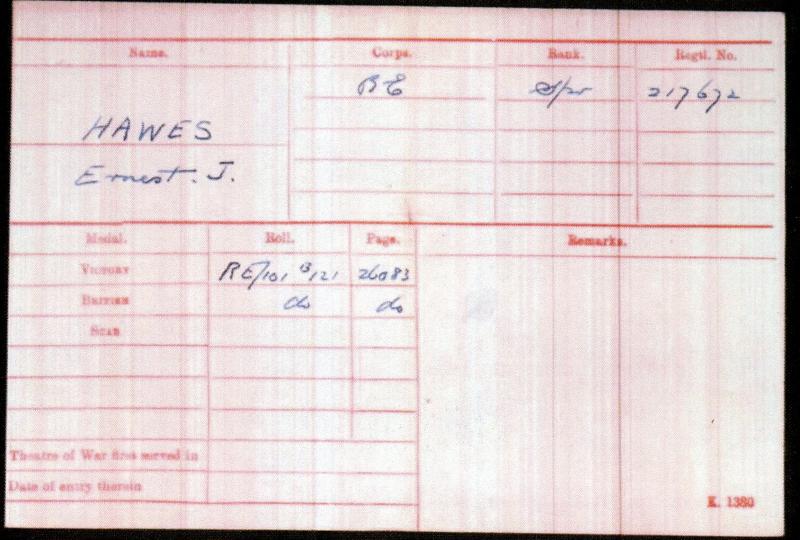 Name. Corps. Rank. Regtl. No.
RE Spr 217672
HAWES
Ernest. J.
Medal. Roll. Page. Remarks.
VICTORY RE/101 B121 26083
BRITISH do do
STAR
Theatre of War first served in
Date of entry therein
K. 1380